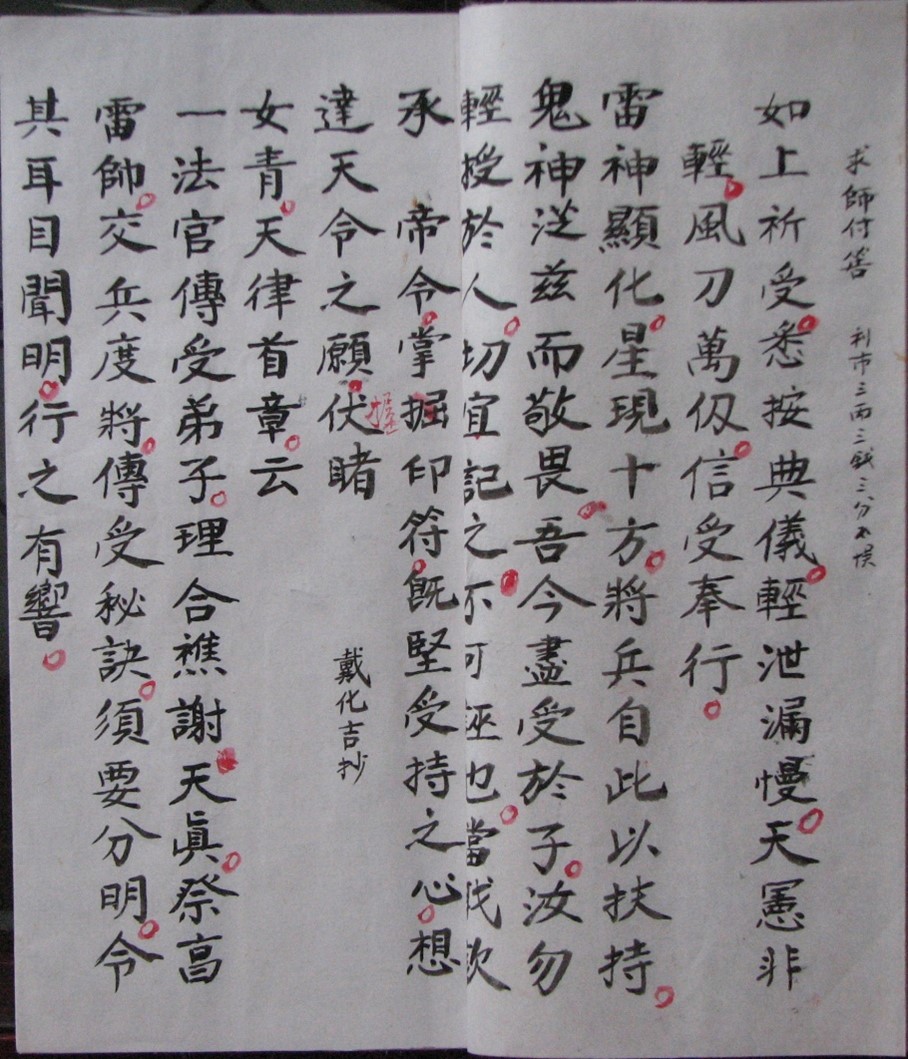 求師付簽 利市三両三錢三分不悮
如上祈受悉按典儀輕泄漏慢天憲非
輕風刀萬仭信受奉行
雷神顯化星現十方將兵自此以扶持
鬼神従兹而敬畏吾今盡受於子汝勿
輕授於人切宜記之不可誣也當我欽
承 帝令掌掘印符旣堅受持之心想
據
達天令之願伏睹
戴化吉抄
女青天律首章云
一法官傳受弟子理合襟謝天眞祭高
雷帥交兵度將傳受秘訣須要分明令
其耳目聞明行之有響